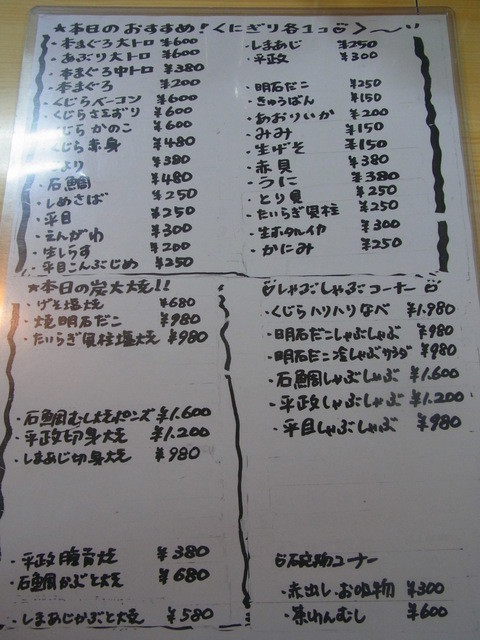 ★本日のおすすめ!〈にぎり各1コ〉
・本まぐろ大トロ ¥600
・あおり大トロ ¥600
・本まぐろ中トロ ¥380
・本まぐろ ¥200
・くじらベーコン ¥600
・くじらさえずり ¥600
・くじらかのこ ¥600
・くじら赤身 ¥480
・さより ¥380
・石鯛 ¥480
・しめさば ¥250
・平目 ¥250
・えんがわ ¥300
・生しらす ¥200
・平目こんぶじめ ¥250
・しまあじ ¥250
・平政 ¥300
・明石だこ ¥250
・きゅうばん ¥150
・あおりいか ¥200
・みみ ¥150
・生げそ ¥150
・赤貝 ¥380
・うに ¥380
・とり貝 ¥250
・たいらぎ貝柱 ¥250
・生ホタルイカ ¥300
・かにみ ¥250
★本日の炭火焼!!
・げそ塩焼 ¥680
・焼明石だこ ¥980
・たいらぎ貝柱塩焼 ¥980
・石鯛むし焼ポンズ ¥1.600
・平政切身焼 ¥1.200
・しまあじ切身焼 ¥980
・平政 焼 ¥380
・石鯛かぶと焼 ¥680
・しまあじかぶと焼 ¥580
しゃぶしゃぶコーナー
・くじらハリハリなべ ¥1.980
・明石だこしゃぶしゃぶ ¥980
・明石だこ冷しゃぶサラダ ¥980
・石鯛しゃぶしゃぶ ¥1.600
・平政しゃぶしゃぶ ¥1.200
・平目しゃぶしゃぶ ¥980
コーナー
・赤出し・お吸物 ¥300
・茶わんむし ¥600